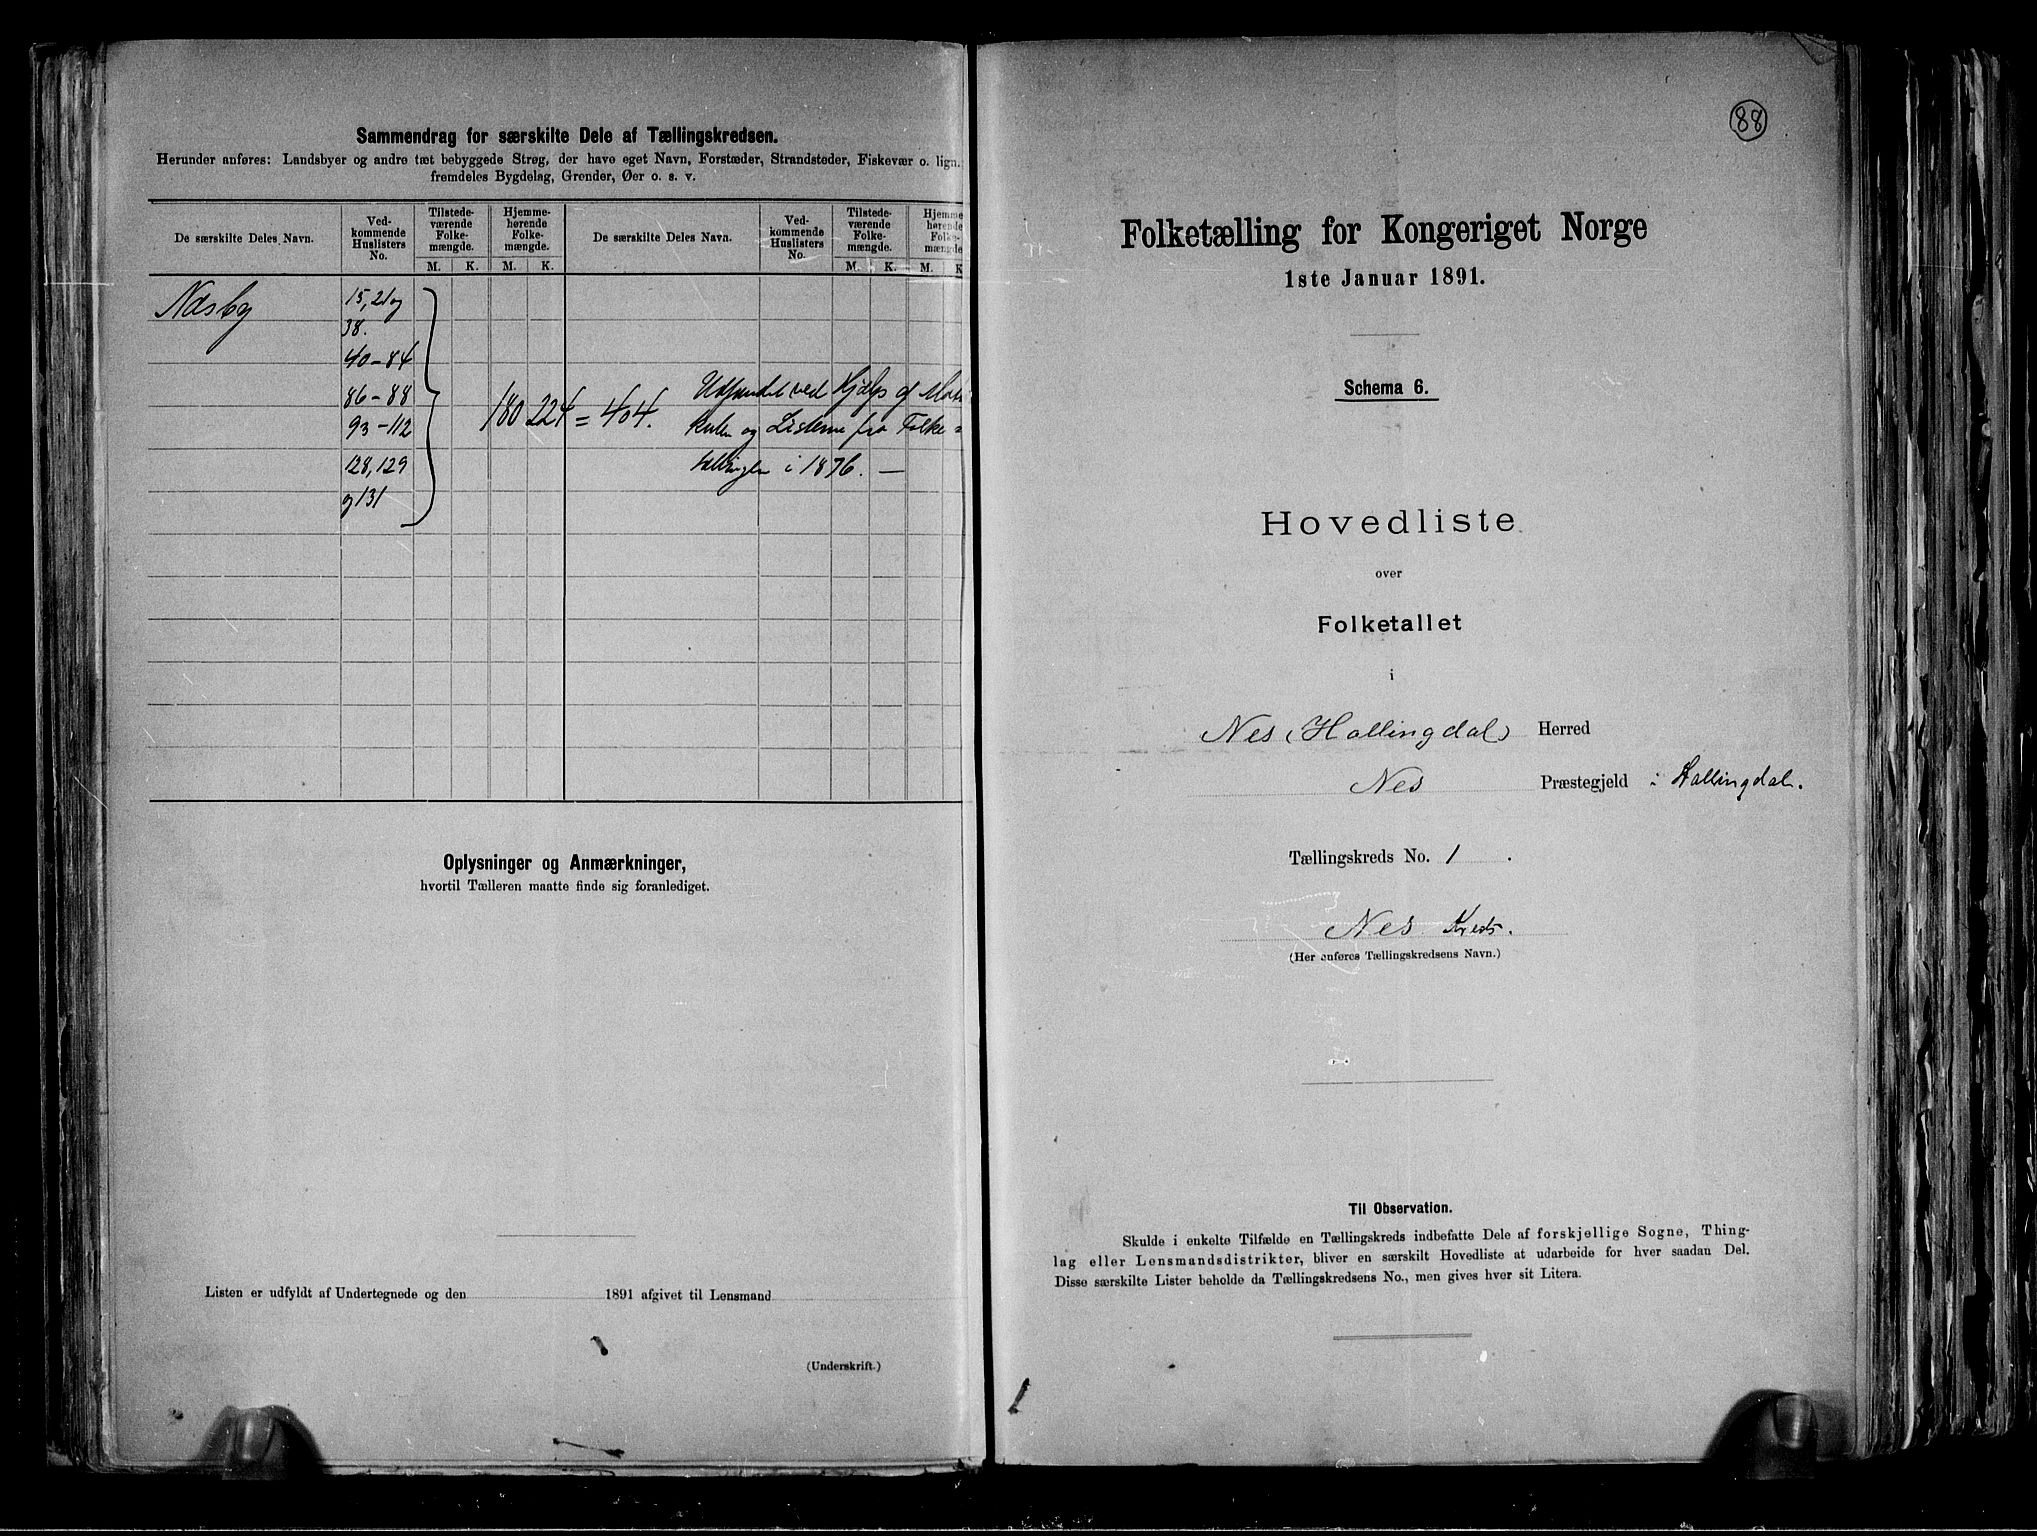 Sammendrag for særskilte Dele af Tællingskredsen.
Herunder anføres: Landsbyer og andre tæt bebyggede Strøg, der have eget Navn, Forstæder, Strandsteder, Fiskevær o. lign.
fremdeles Bygdelag, Grender, Øer o. s. v.
De særskilte Deles Navn.
Ved-
kommende
Huslisters
No.
Tilstede-
værende
Folke-
mængde.
Hjemme-
hørende
Folke-
mængde.
De særskilte Deles Navn.
Ved-
kommende
Huslisters
No.
Tilstede-
værende
Folke-
mængde.
Hjemme
hørende
Folke-
mængde
M. K. M. K. M. K. M. K
Næsby
15, 21 og
38.
40-84
86-88
93-112
128, 129
og 131
180 224 = 404.
Udfundet ved Hjælp af
og Listerne fra Folke=
tællingen i 1876. —
Oplysninger og Anmærkninger,
hvortil Tælleren maatte finde sig foranlediget.
Listen er udfyldt af Undertegnede og den 1891 afgivet til Lensmand
(Underskrift.)
88
Folketælling for Kongeriget Norge
1ste Januar 1891.
Schema 6.
Hovedliste
over
Folketallet
i
Nes (Hallingdal) Herred
Nes Præstegjeld i Hallingdal.
Tællingskreds No. 1.
Nes Kreds.
(Her anføres Tællingskredsens Navn.)
Til Observation.
Skulde i enkelte Tilfælde en Tællingskreds indbefatte Dele af forskjellige Sogne, Thing-
lag eller Lensmandsdistrikter, bliver en særskilt Hovedliste at udarbeide for hver saadan Del.
Disse særskilte Lister beholde da Tællingskredsens No., men gives hver sit Litera.